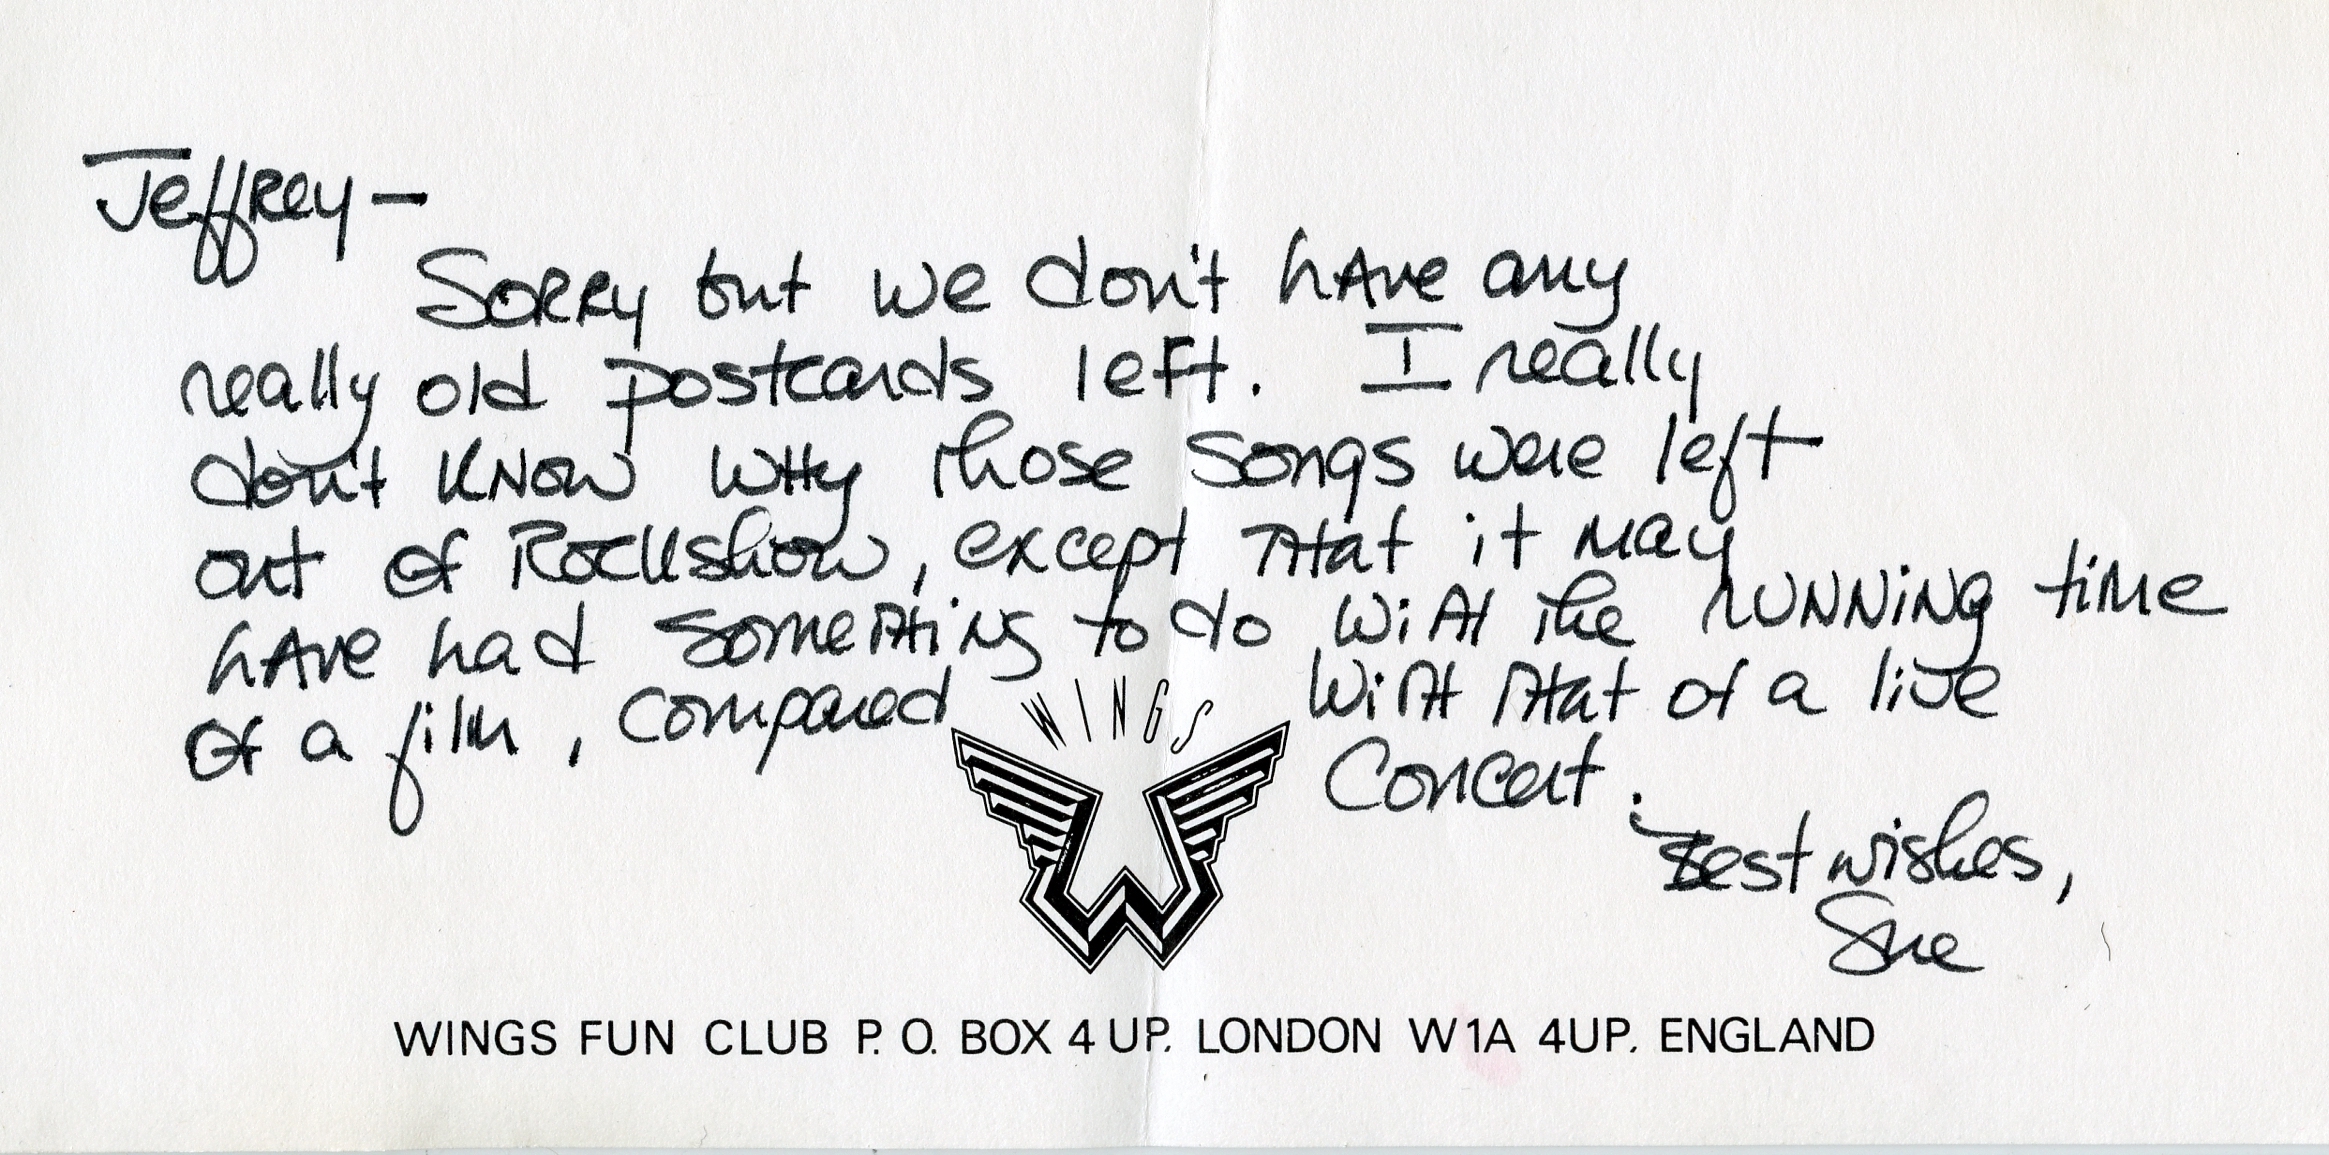 Jeffrey —
Sorry but we don't have any
really old postcards left. I really
don't know why those songs were left
out of Rockshow, except that it may
have had something to do with the running time
of a film, compared with that of a live
concert.
Best wishes,
Sue
WINGS
WINGS FUN CLUB P. O. BOX 4 UP. LONDON W1A 4UP. ENGLAND